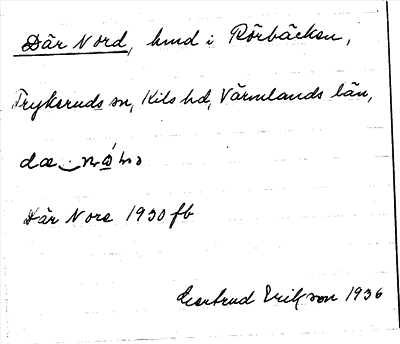 Där Nord, hmd i Rörbäcken,
Frykeruds sn, Kils hd, Värmlands län,
dæ
Där Nore 1930 fb
Gertrud Erikson 1936